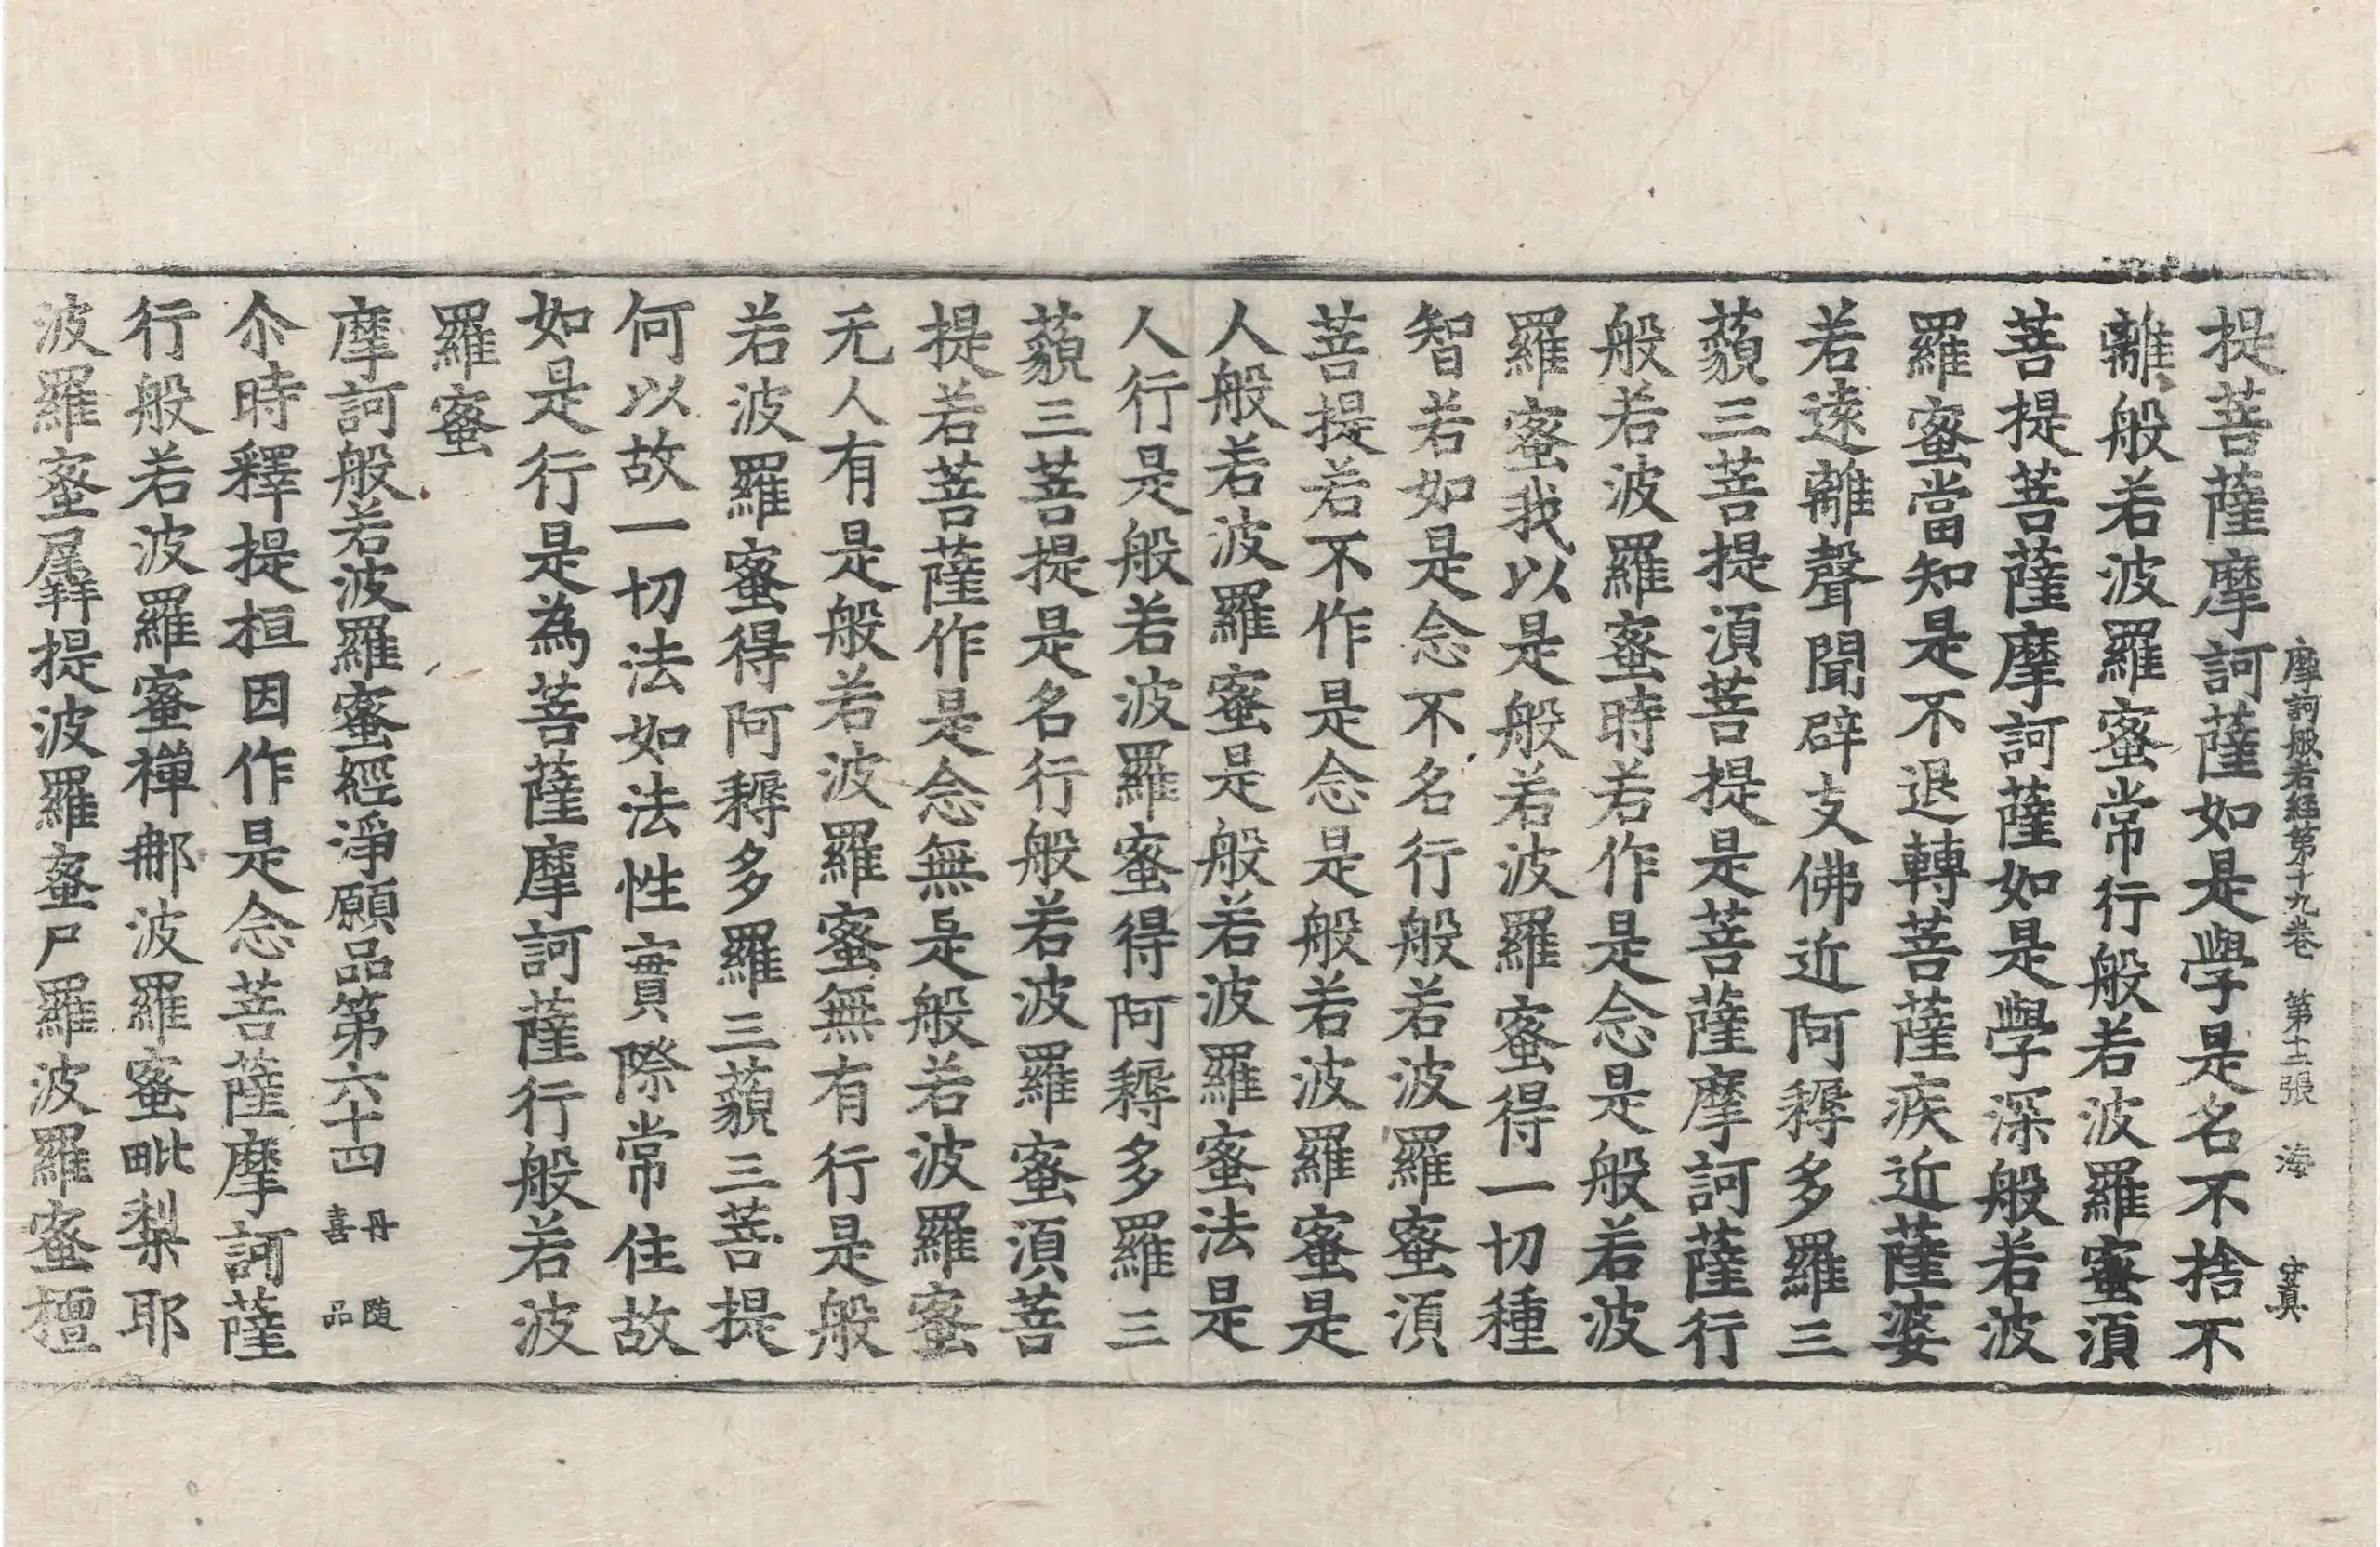 摩訶般若經第十九卷 第十二張 海 守真
提菩薩摩訶薩如是學是名不捨不
離般若波羅蜜常行般若波羅蜜湏
菩提菩薩摩訶薩如是學深般若波
羅蜜當知是不退轉菩薩疾近薩婆
若遠離聲聞辟支佛近阿耨多羅三
藐三菩提湏菩提是菩薩摩訶薩行
般若波羅蜜時若作是念是般若波
羅蜜我以是般若波羅蜜得一切種
智若如是念不名行般若波羅蜜湏
菩提若不作是念是般若波羅蜜是
人般若波羅蜜是般若波羅蜜法是
人行是般若波羅蜜得阿耨多羅三
藐三菩提是名行般若波羅蜜湏菩
提若菩薩作是念無是般若波羅蜜
无人有是般若波羅蜜無有行是般
若波羅蜜得阿耨多羅三藐三菩提
何以故一切法如法性實際常住故
如是行是為菩薩摩訶薩行般若波
羅蜜
摩訶般若波羅蜜經淨願品第六十四 丹隨喜品
尒時釋提桓因作是念菩薩摩訶薩
行般若波羅蜜禪那波羅蜜毗梨耶
波羅蜜羼提波羅蜜尸羅波羅蜜檀